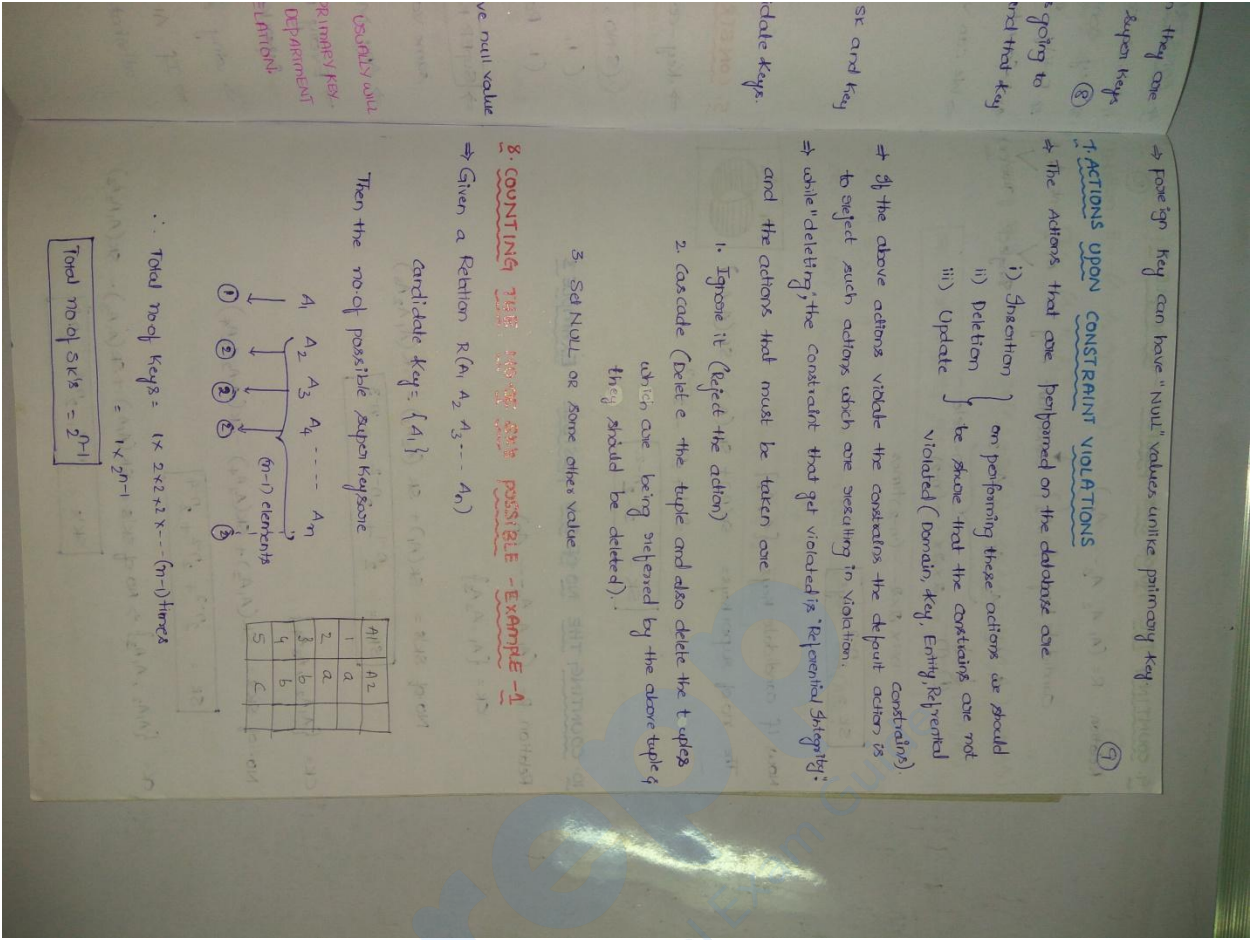 n they are
super keys
⑧
s going to
nd that key
SK and key
idate keys.
ve null value
USUALLY WILL
PRIMARY KEY.
DEPARTMENT
ELATION.
⑨
⇒ Foreign key can have "NULL" values unlike primary key
7. ACTIONS UPON CONSTRAINT VIOLATIONS
⇒ The Actions that are performed on the database are
i) Insertion
ii) Deletion
iii) Update
on performing these actions we should
be shure that the constrains are not
violated (Domain, key, Entity, Refrential
constrains).
⇒ If the above actions violate the constrains the default action is
to reject such actions which are resulting in violation.
⇒ while "deleting", the constraint that get violated is "Referential Integrity".
and the actions that must be taken are
1. Ignore it (Reject the action)
2. Cascade (Delete the tuple and also delete the tuples
which are being referred by the above tuple &
they should be deleted).
3. Set NULL OR some other value
8. COUNTING THE POSSIBLE - EXAMPLE - 1
⇒ Given a Relation R(A1 A2 A3 --- An)
candidate key = {A1}
Then the no.of possible super keys are
A1 A2 A3 A4 ----- An
(n-1) elements
① ② ② ② ②
A1 A2
1 a
2 a
3 b
4 b
5 c
∴ Total no.of keys = 1 x 2 x 2 x 2 x --- (n-1) times
= 1 x 2^n-1
Total no.of SK's = 2^n-1